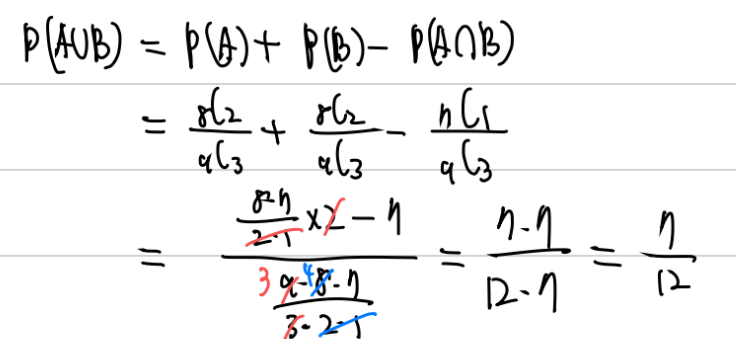 P(A∪B) = P(A) + P(B) - P(A∩B)
= ₈C₂/₉C₃ + ₈C₂/₉C₃ - ₇C₁/₉C₃
= (8·7/2·1 × 2 - 7)/(9·8·7/3·2·1) = 7·7/12·7 = 7/12